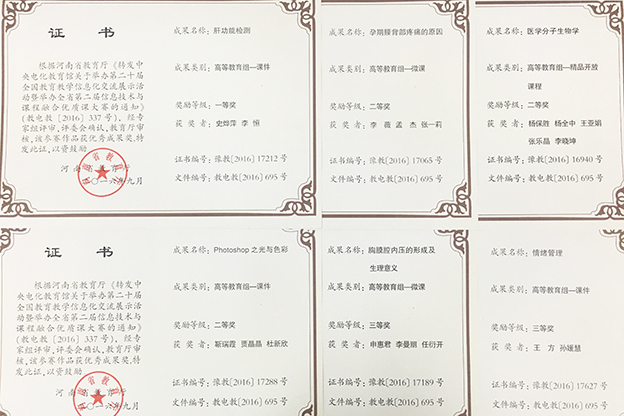 证 书
根据河南省教育厅《转发中
央电化教育馆关于举办第二十届
全国教育教学信息化交流展示活
动暨举办全省第二届信息技术与
课程融合优质课大赛的通知》
(教电教〔2016〕337号)，经专
家组评审、评委会确认、教育厅审
核，该参赛作品获优秀成果奖，特
发此证，以资鼓励。
二〇一六年九月
成果名称：肝功能检测
成果类别：高等教育组—课件
奖励等级：一等奖
获 奖 者：史烨萍 李 恒
证书编号：豫教〔2016〕17212 号
文件编号：教电教〔2016〕695 号
成果名称：孕期腰背部疼痛的原因
成果类别：高等教育组—微课
奖励等级：二等奖
获 奖 者：李 薇 孟 杰 张一莉
证书编号：豫教〔2016〕17065 号
文件编号：教电教〔2016〕695 号
成果名称：医学分子生物学
成果类别：高等教育组—精品开放
课程
奖励等级：二等奖
获 奖 者：杨保胜 杨全中 王亚娟
张乐晶 李晓坤
证书编号：豫教〔2016〕16940 号
文件编号：教电教〔2016〕695 号
证 书
根据河南省教育厅《转发中
央电化教育馆关于举办第二十届
全国教育教学信息化交流展示活
动暨举办全省第二届信息技术与
课程融合优质课大赛的通知》
(教电教〔2016〕337号)，经专
家组评审、评委会确认、教育厅审
核，该参赛作品获优秀成果奖，特
发此证，以资鼓励。
二〇一六年九月
成果名称：Photoshop 之光与色彩
成果类别：高等教育组—课件
奖励等级：二等奖
获 奖 者：靳瑞霞 贾晶晶 杜新欣
证书编号：豫教〔2016〕17288 号
文件编号：教电教〔2016〕695 号
成果名称：胸膜腔内压的形成及
生理意义
成果类别：高等教育组—微课
奖励等级：三等奖
获 奖 者：申惠君 李曼丽 任衍开
证书编号：豫教〔2016〕17189 号
文件编号：教电教〔2016〕695 号
成果名称：情绪管理
成果类别：高等教育组—课件
奖励等级：三等奖
获 奖 者：王 方 孙媛慧
证书编号：豫教〔2016〕17627 号
文件编号：教电教〔2016〕695 号